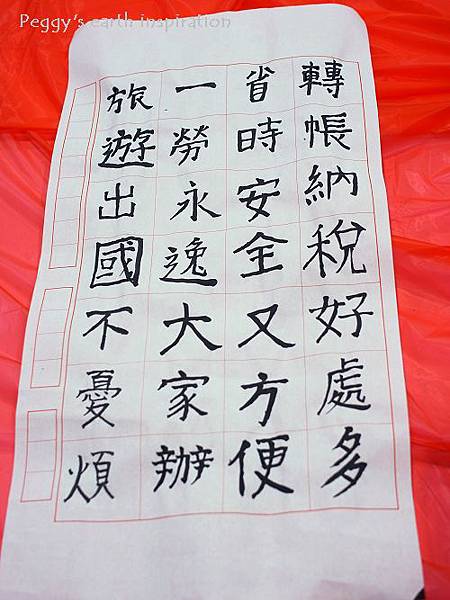 Peggy's earth inspiration
轉帳納稅好處多
省時安全又方便
一勞永逸大家辦
旅遊出國不憂煩